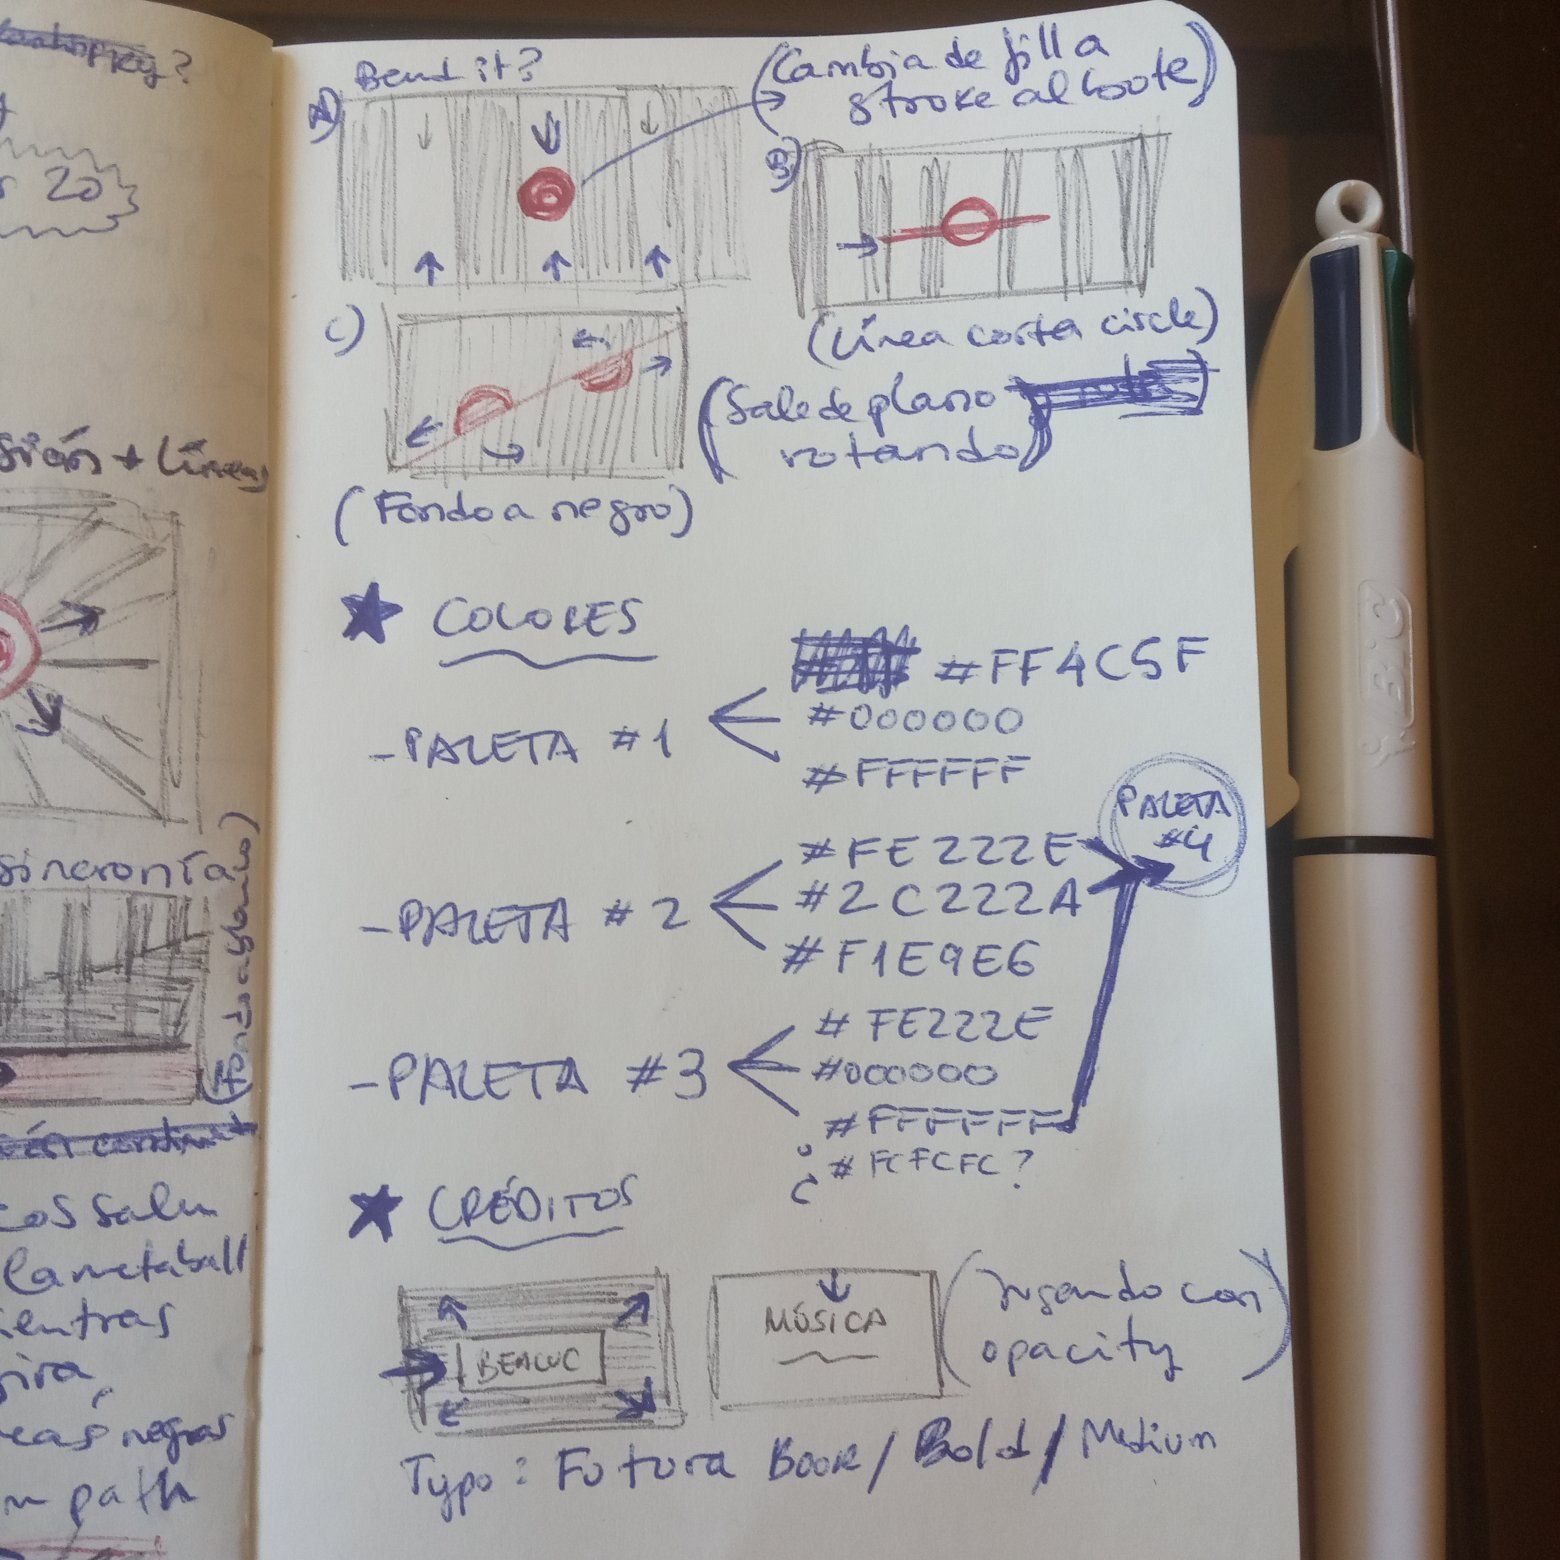 ?
20
sión + líneas
sincronía
cos salen
la metaball
mientras
gira,
negras
path
Bend it?
A)
(Cambia de fill a
stroke al bote)
B)
(Línea corta circle)
C)
(Sale de plano
rotando)
(Fondo a negro)
COLORES
-PALETA #1
#FF4C5F
#000000
#FFFFFF
PALETA
#4
-PALETA #2
#FE222E
#2C222A
#F1E9E6
-PALETA #3
#FE222E
#000000
#FFFFFF
¿#FCFCFC?
CRÉDITOS
MÚSICA
(Jugando con
opacity)
Typo: Futura Book/Bold/Medium
BIC